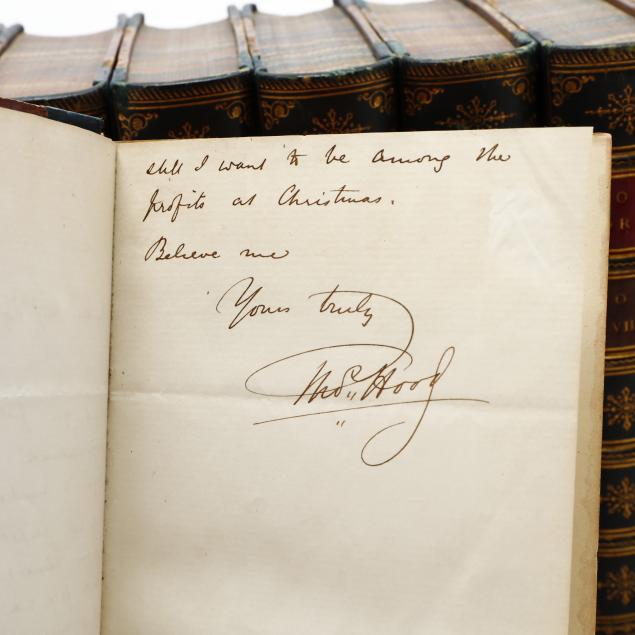 still I want to be among the
profits at Christmas.
Believe me
Yours truly
Thos. Hood